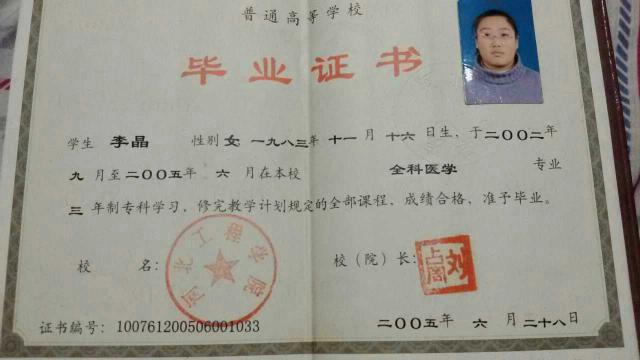 普通高等学校
毕业证书
学生 李晶 性别 女 一九八三年 十一月 十六日生，于二〇〇二年
九月至二〇〇五年 六月在本校 全科医学 专业
三年制专科学习，修完教学计划规定的全部课程，成绩合格，准予毕业。
校 名： 河北工程学院 校（院）长：
证书编号：100761200506001033 二〇〇五年 六月 二十八日